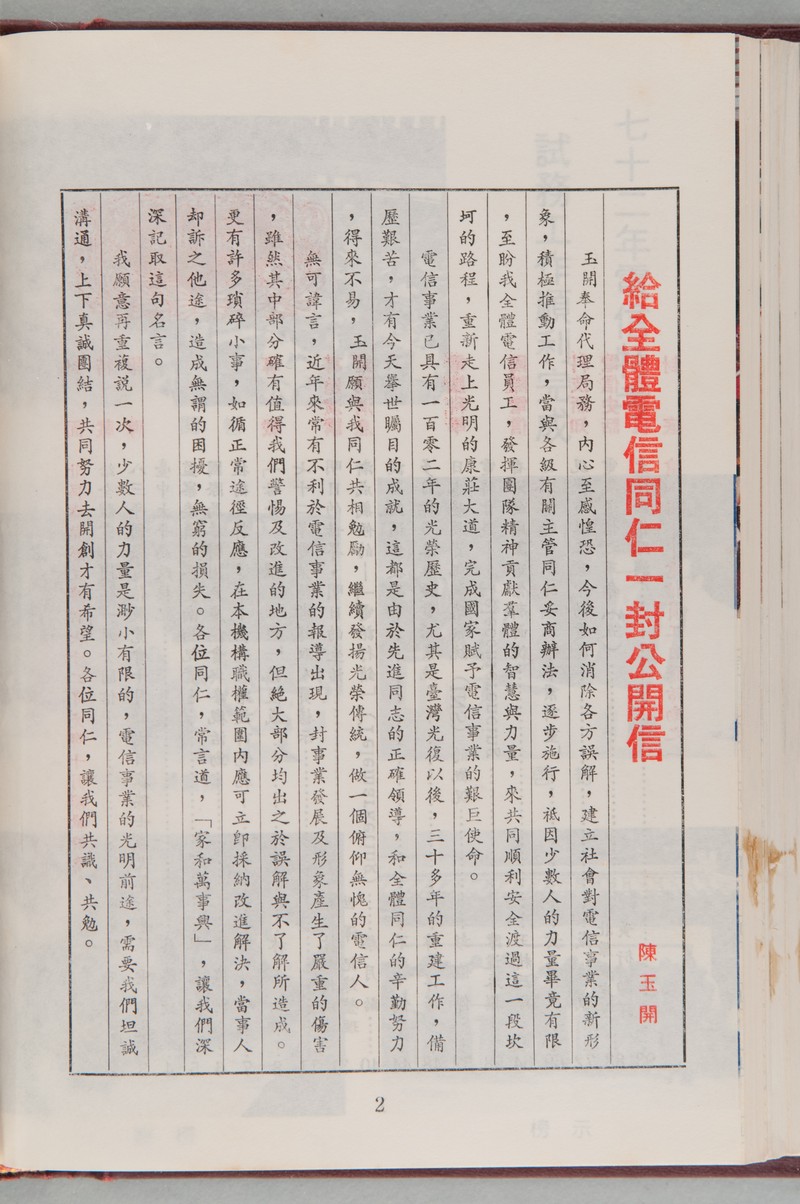 給全體電信同仁一封公開信
陳玉開
玉開奉命代理局務，內心至感惶恐，今後如何消除各方誤解，建立社會對電信事業的新形
象，積極推動工作，當與各級有關主管同仁妥商辦法，逐步施行，祗因少數人的力量畢竟有限
，至盼我全體電信員工，發揮團隊精神貢獻羣體的智慧與力量，來共同順利安全渡過這一段坎
坷的路程，重新走上光明的康莊大道，完成國家賦予電信事業的艱巨使命。
電信事業已具有一百零二年的光榮歷史，尤其是臺灣光復以後，三十多年的重建工作，備
歷艱苦，才有今天舉世矚目的成就，這都是由於先進同志的正確領導，和全體同仁的辛勤努力
，得來不易，玉開願與我同仁共相勉勵，繼續發揚光榮傳統，做一個俯仰無愧的電信人。
無可諱言，近年來常有不利於電信事業的報導出現，封事業發展及形象產生了嚴重的傷害
，雖然其中部分確有值得我們警惕及改進的地方，但絕大部分均出之於誤解與不了解所造成。
更有許多瑣碎小事，如循正常途徑反應，在本機構職權範圍內應可立即採納改進解決，當事人
却訴之他途，造成無謂的困擾，無窮的損失。各位同仁，常言道，「家和萬事興」，讓我們深
深記取這句名言。
我願意再重複説一次，少數人的力量是渺小有限的，電信事業的光明前途，需要我們坦誠
溝通，上下真誠團結，共同努力去開創才有希望。各位同仁，讓我們共識、共勉。
2